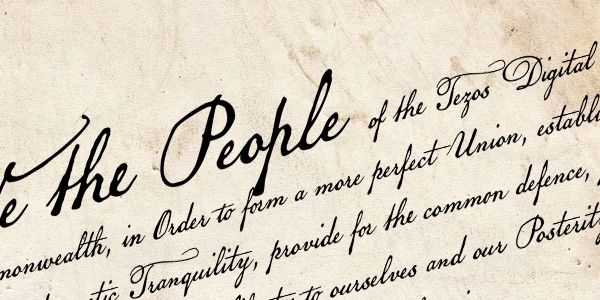 the People of the Tezos Digital
in Order to form a more perfect Union,
Tranquility, provide for the common defence,
to ourselves and our